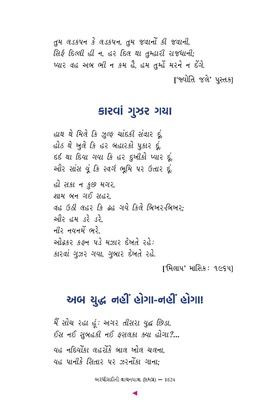 તુમ લડકપન કે લડકપન, તુમ જવાનોં કી જવાની,
સિર્ફ દિલ્લી હી ન, હર દિલ થા તુમ્હારી રાજધાની;
પ્યાર વહ અબ ભી ન કમ હૈ, હમ તુમ્હેં મરને ન દેંગે.
['જ્યોતિ જલે' પુસ્તક]
કારવાં ગુઝર ગયા
હાથ થે મિલે કિ ઝુલ્ફ ચાંદકી સંવાર દૂં,
હોઠ થે ખુલે કિ હર બહારકો પુકાર દૂં,
દર્દ થા દિયા ગયા કિ હર દુખીકો પ્યાર દૂં,
ઔર સાંસ યૂં કિ સ્વર્ગ ભૂમિ પર ઉતાર દૂં,
હો સકા ન કુછ મગર,
શામ બન ગઈ સહર,
વહ ઉઠી લહર કિ ઢહ ગયે કિલે બિખર-બિખર;
ઔર હમ ડરે ડરે,
નીર નયનમેં ભરે,
ઓઢકર કફન પડે મઝાર દેખતે રહે;
કારવાં ગુઝર ગયા, ગુબાર દેખતે રહે.
['મિલાપ' માસિક: ૧૯૬૫]
અબ યુદ્ધ નહીં હોગા-નહીં હોગા!
મૈં સોચ રહા હૂં: અગર તીસરા યુદ્ધ છિડા,
ઈસ નઈ સુબહકી નઈ ફસલકા ક્યા હોગા?...
વહ નદિયોંકા લહરોંકે બાલ ખોલ ચલના,
વહ પાનીકે સિતાર પર ઝરનોંકા ગાના;